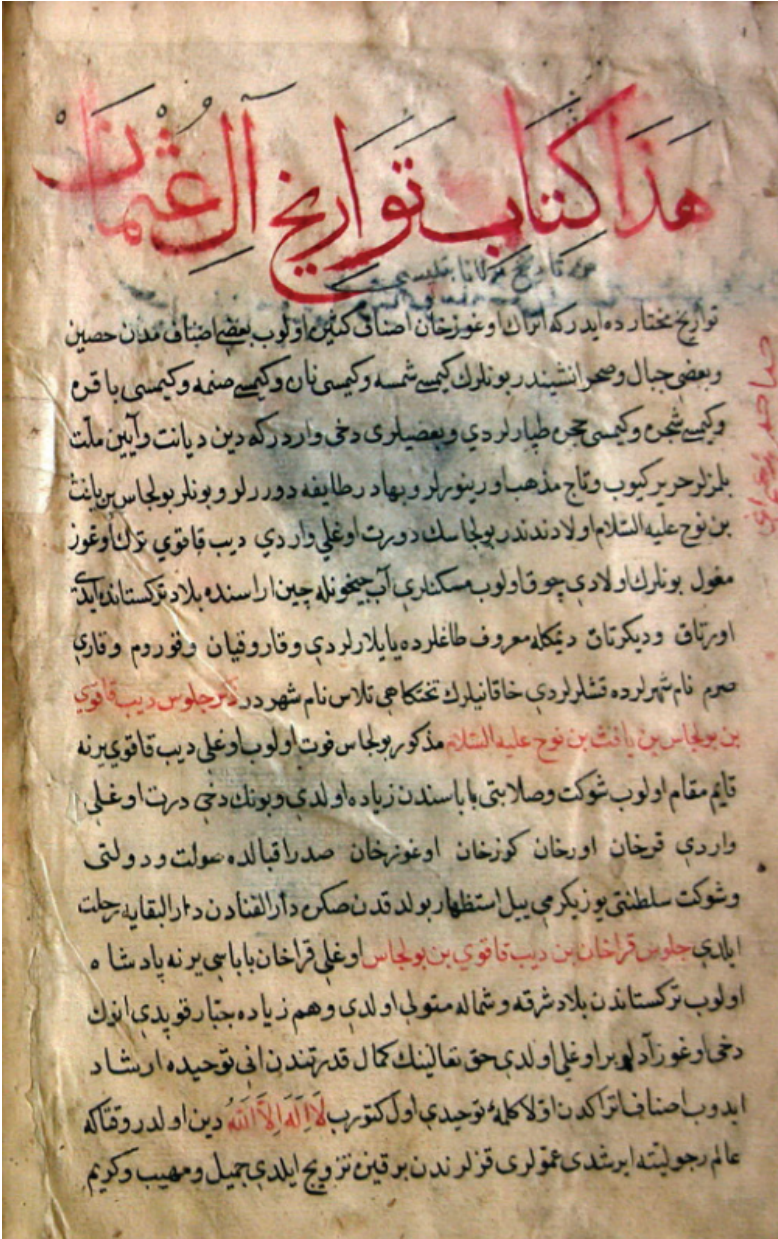 هذا كتاب تواريخ آل عثمان
تواريخ مختارده ايدر كه اتراك اوغوزخان اصناف كثيره اولوب بعضى اصناف مدن حصين
وبعضى جبال وصحرانشيندر بونلرك كيمسى شمسه وكيمسى نان وكيمسى صنمه وكيمسى باقره
وكيمسى شجره وكيمسى حجره طپارلردي وبعضيلرى دخى واردركه دين ديانت وآيين ملت
بلمزلر حرير كيوب وتاج مذهب اورينورلر وبهادر طايفه دوررلر و بونلر بولجاس بن يافث
بن نوح عليه السلام اولادندندر بولجاسك دورت اوغلى واردي ديب قاقوي ترك اوغوز
مغول بونلرك اولادي چوق اولوب مسكنلري آب جيحونله چين اراسنده بلاد تركستانده ايدى
اورتاق وديكرتاق ديمكله معروف طاغلرده يايلارلردي وقاروقيان وقوروم وقاري
صرم نام شهرلرده قشلرلردي خاقانيلرك تختكاهى تلاس نام شهردر ذكر جلوس ديب قاقوي
بن بولجاس بن يافث بن نوح عليه السلام مذكور بولجاس فوت اولوب اوغلى ديب قاقوي يرنه
قايم مقام اولوب شوكت وصلابتى باباسندن زياده اولدي وبونك دخى درت اوغلى
واردي قرخان اورخان كوزخان اوغوزخان صدر اقبالده صولت ودولتى
وشوكت سلطنتى يوزيكرمي ييل استظهار بولدقدن صكره دارالفنادن دارالبقايه رحلت
ايلدي جلوس قراخان بن ديب قاقوي بن بولجاس اوغلى قراخان باباسى يرنه پادشاه
اولوب تركستاندن بلاد شرقه وشماله متولى اولدي وهم زياده جبار قوپدي انوك
دخى اوغوز آدلو بر اوغلى اولدي حق تعالينك كمال قدرتندن انى توحيده ارشاد
ايدوب اصناف اتراكدن اولا كلمۀ توحيدي اول كتورب لَا اِلٰهَ اِلَّا اللهُ دين اولدر وقتاكه
عالم رجوليته ايرشدى عمولرى قزلرندن بر قيزه تزويج ايلدي جميل ومهيب وكريم